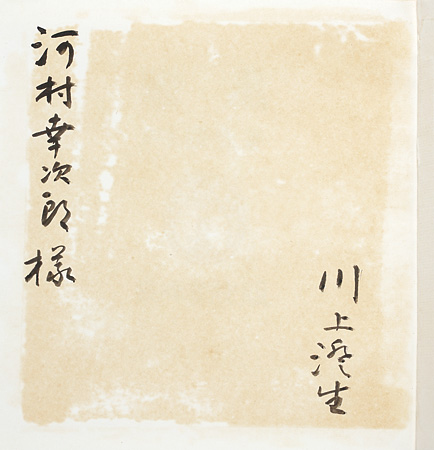 川上澄生
河村幸次郎様